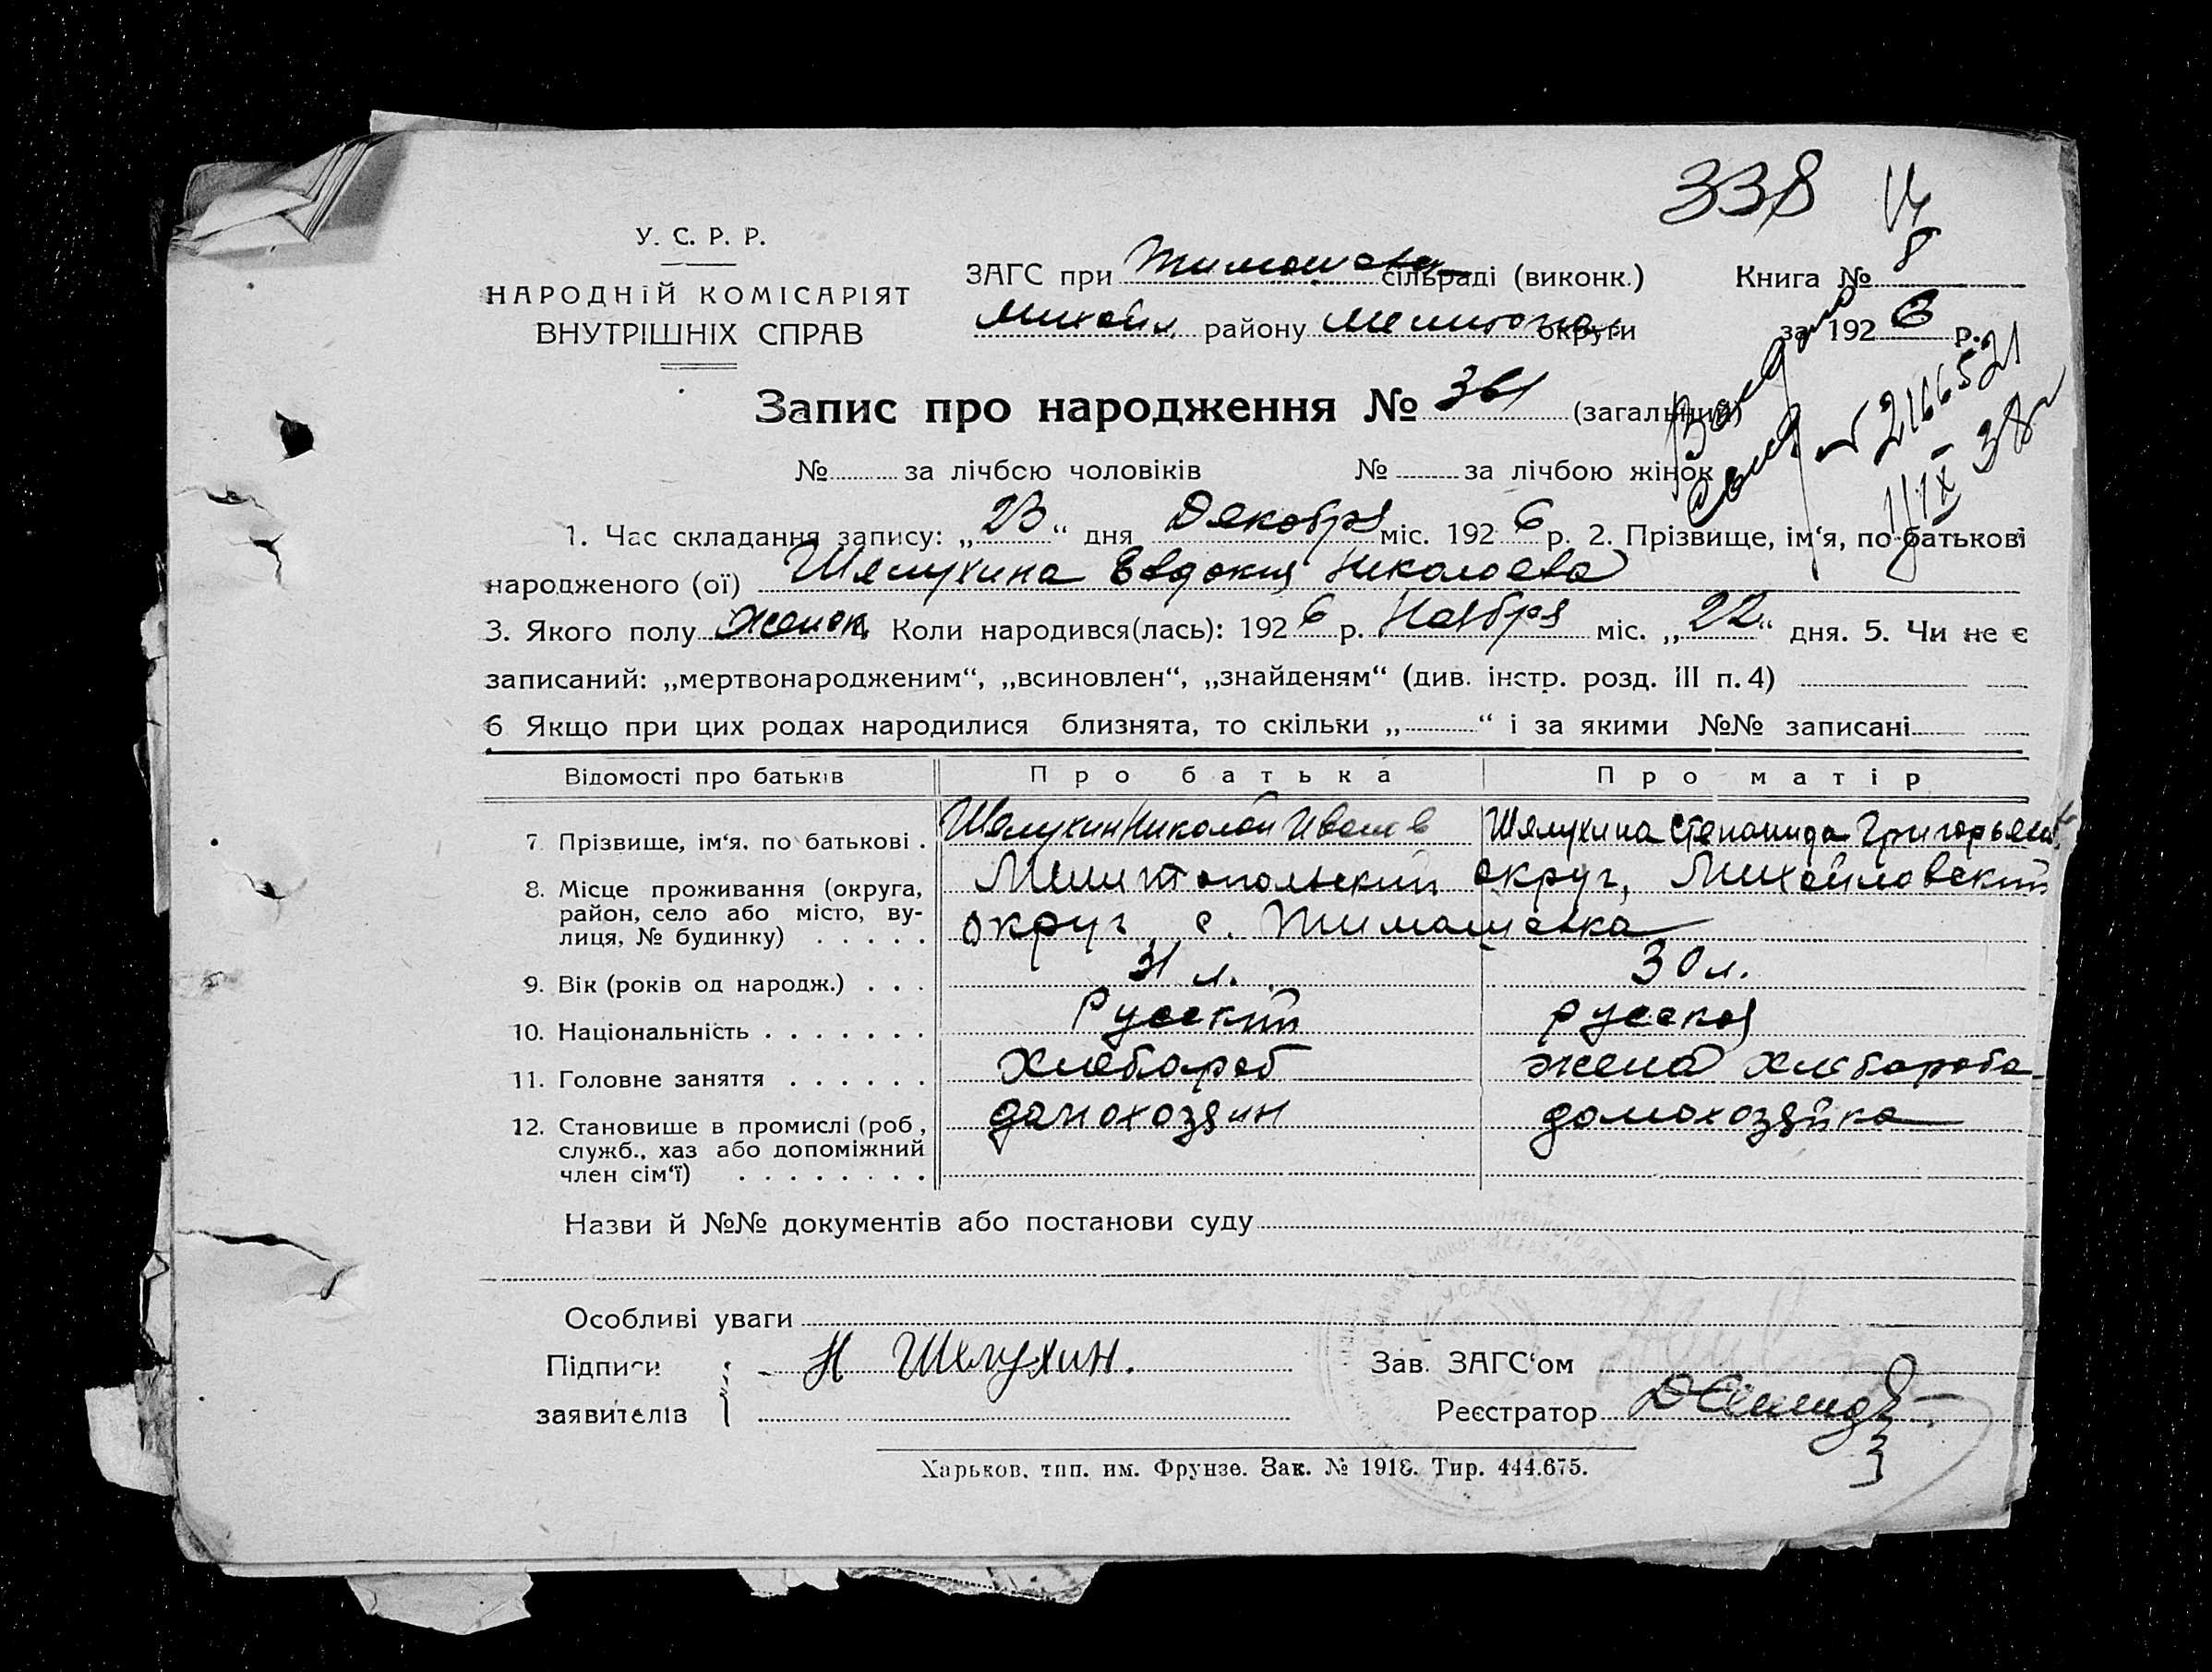 338
У. С. Р. Р.
НАРОДНІЙ КОМІСАРІЯТ
ВНУТРІШНІХ СПРАВ
ЗАГС при Тимошевск сільраді (виконк.) Книга № 8
Михайл. району Мелитоп. округи за 1926 р.
Запис про народження № 361 (загальний)
№ за лічбою чоловіків № за лічбою жінок
№ 2166521
1/IX 38 г
1. Час складання запису: „23“ дня Декобря міс. 1926 р. 2. Прізвище, ім‘я, по батькові
народженого (ої) Шелухина Евдокия Николаева
3. Якого полу женск. Коли народився(лась): 1926 р. Ноября міс. „22“ дня. 5. Чи не є
записаний: „мертвонародженим“, „всиновлен“, „знайденям“ (див. інстр. розд. III п. 4)
6 Якщо при цих родах народилися близнята, то скільки „ “ і за якими №№ записані
Відомості про батьків Про батька Про матір
7. Прізвище, ім‘я, по батькові . Шелухин Николай Иванов Шелухина Степанида Григорьева
8. Місце проживання (округа, район, село або місто, вулиця, № будинку) . . . . . Мелитопольский округ, Михайловский
округ с. Тимошевка
9. Вік (років од народж.) . . . 31 л. 30 л.
10. Національність . . . . . . . Русский русская
11. Головне заняття . . . . . . Хлебороб жена хлебороба
12. Становище в промислі (роб, служб., хаз або допоміжний член сім‘ї) . . . . . . . . домохозяин домохозяйка
Назви й №№ документів або постанови суду
Особливі уваги
Підписи Н Шелухин. Зав. ЗАГС‘ом
заявителів Реєстратор
Харьков, тип. им. Фрунзе. Зак. № 1918. Тир. 444.675.